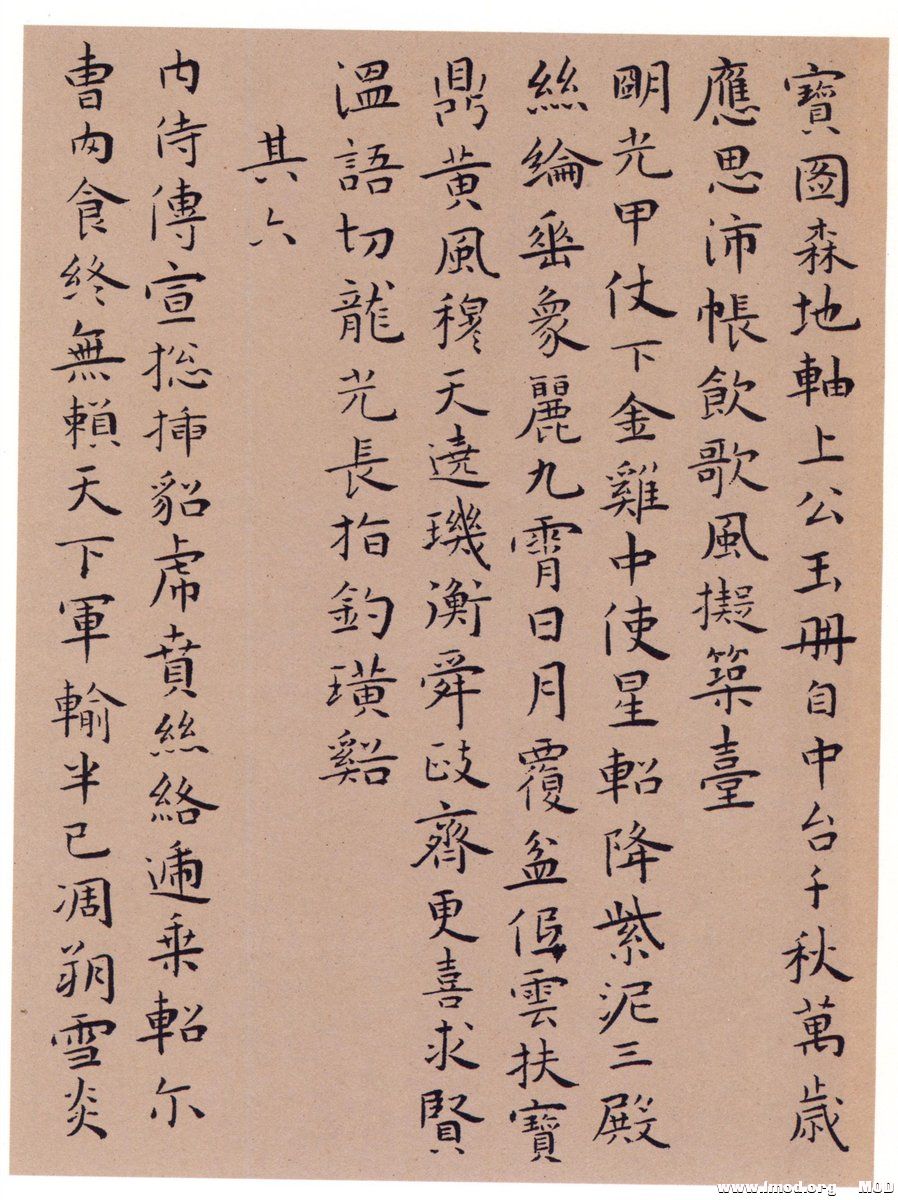 寶圖森地軸上公玉册自中台千秋萬歲
應思沛帳飲歌風擬築臺
明光甲仗下金雞中使星軺降紫泥三殿
絲綸垂象麗九霄日月覆盆低雲扶寶
鼎黃風穆天遶璣衡舜政齊更喜求賢
溫語切龍光長指釣璜谿
其六
內侍傳宣摠插貂虎賁絲絡遞乘軺尔
曹肉食終無賴天下軍輸半已凋朔雪炎
www.lmod.org MOD